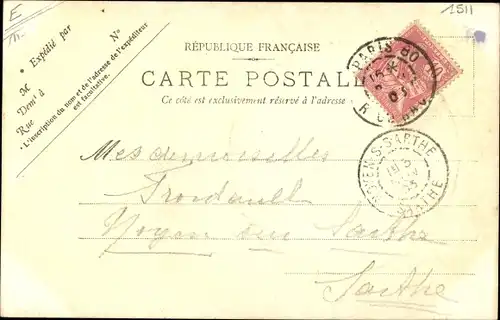 E
1511
Expédié par
N°
M
Demt à
Rue
• L'inscription du nom et de l'adresse de l'expéditeur
est facultative.
RÉPUBLIQUE FRANÇAISE
CARTE POSTALE
Ce côté est exclusivement réservé à l'adresse
PARIS 80
03
NOYEN-S-SARTHE
SARTHE
Mesdemoiselles
Noyen sur Sarthe
Sarthe